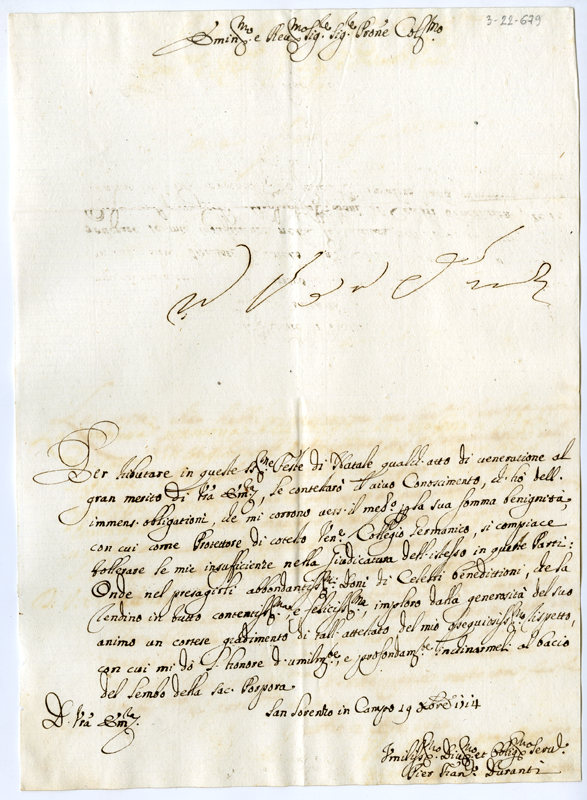 3-22-679
Emin.mo e Rev.mo Sig.re Sig.re Prone Col.mo
Per tributare in queste SS.me Feste di Natale qualch'atto di veneratione al
gran merito di Vra Em.za, se contentarà il vivo Conoscimento, ch'hò dell'
immens'obligationi, che mi corrono vers'il med.o, p la sua somma benignità,
con cui come Protettore di cotesto Ven.e Collegio Germanico, si compiace
tollerare le mie insufficienze nella Giudicatura dell'istesso in queste Parti:
Onde nel presagirli abbondantiss.mi doni di Celesti Benedittioni, che la
rendino in tutto contentiss.ma, e feliciss.ma, imploro dalla generosità del suo
animo un cortese gradimento di tall'attestato del mio ossequiosiss.mo rispetto,
con cui mi dò l'honore d'umilm.te, e profondam.te inchinarmeli al bacio
del lembo della sac. Porpora
D. Vra Em.za
San Lorenzo in Campo 19 Xbre 1714
Umiliss.mo Div.mo et Oblig.mo Serv.e
Pier Fran.co Duranti